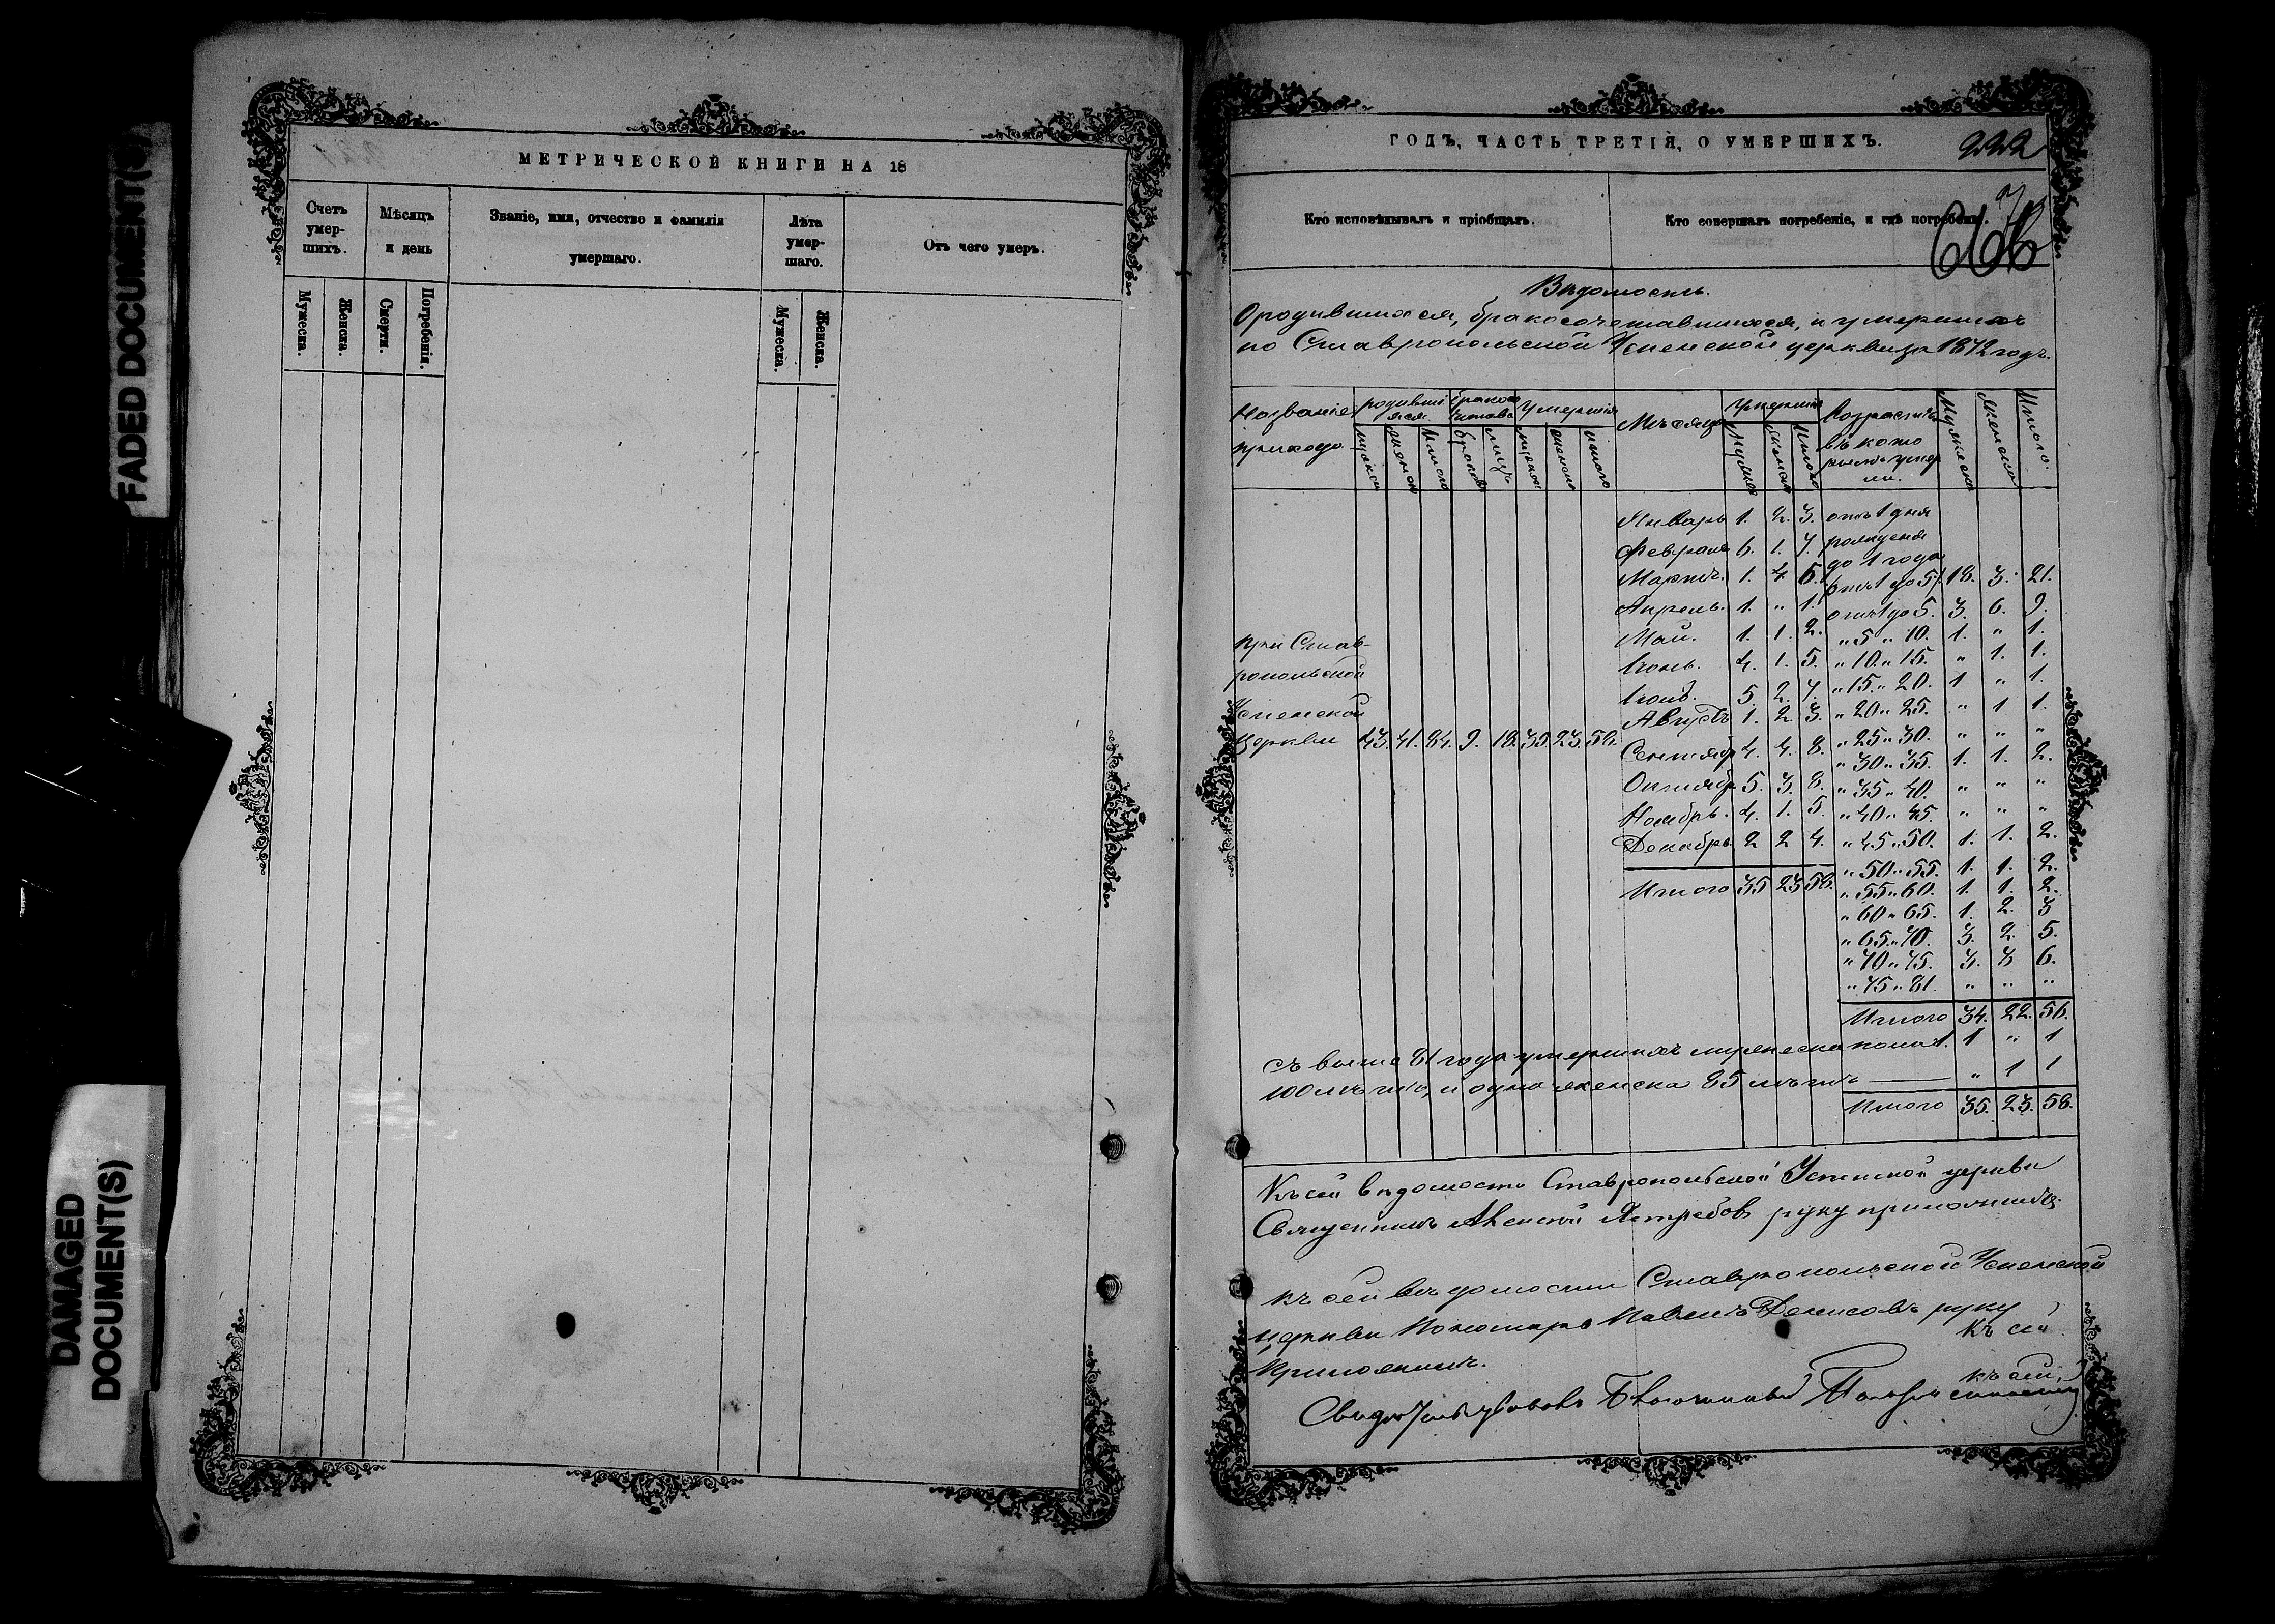 FADED DOCUMENT(S)
DAMAGED
DOCUMENT(S)
МЕТРИЧЕСКОЙ КНИГИ НА 18
Счетъ умер-шихъ.
Мѣсяцъ и день
Званіе, имя, отчество и фамилія умершаго.
Лѣта умер-шаго.
Отъ чего умеръ.
Мужеска.
Женска.
Смерти.
Погребенія.
Мужеска.
Женска.
ГОДЪ, ЧАСТЬ ТРЕТІЯ, О УМЕРШИХЪ.
222
Кто исповѣдывалъ и пріобщалъ.
Кто совершалъ погребеніе, и гдѣ погребены.
Вѣдомость
О родившихся, бракосочетавшихся, и умершихъ
по Ставропольской Успенской церкви за 1872 годъ.
Названіе прихода
родившіяся
умершія
Мѣсяцъ
умершія
Возрастъ въ которыхъ умерли.
Мужеска
Женска
Итого.
Январь 1. 2. 3. отъ 1 дня
Февраль 6. 1. 7. рожденія
Мартъ. 1. 4. 5. до 1 года 18. 3. 21.
Апрель. 1. " 1. отъ 1 до 5. 3. 6. 9.
Май. 1. 1. 2. " 5 " 10. 1. " 1.
Іюнь. 4. 1. 5. " 10 " 15. " 1. 1.
Іюль. 5. 2. 7. " 15 " 20. 1 " 1.
Августъ 1. 2. 3. " 20 " 25. " 1 1.
" 25 " 30. " " "
Сентябр 4. 4. 8. " 30 " 35. 1. 1. 2.
Октябр 5. 3. 8. " 35 " 40. " " "
Ноябрь. 4. 1. 5. " 40 " 45. " " "
Декабрь 2 2 4. " 45 " 50. 1. 1. 2.
" 50 " 55. 1. 1. 2.
Итого 35 23 58. " 55 " 60. 1. 1. 2.
" 60 " 65. 1. 2. 3
" 65 " 70. 3. 2. 5.
" 70 " 75. 3. 3 6.
" 75 " 81. " " "
Итого 34. 22. 56.
при Став-
ропольской
Успенской
Церкви 43. 41. 84. 9. 18. 35. 23. 58.
Съ выше 81 года умершихъ мужеска пола 1. 1 " 1
100 лѣтъ, и одна женска 85 лѣтъ " 1 1
Итого 35. 23. 58.
Къ сей вѣдомости Ставропольской Успенской церкви
Священникъ Алексѣй Ястребовъ руку приложилъ
Къ сей вѣдомости Ставропольской Успенской
церкви Пономарь Павелъ Денисовъ руку
Къ сей
приложилъ.
къ сей